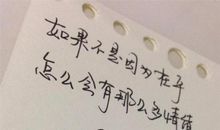 如果不是因为在乎
怎么会有那么多情绪